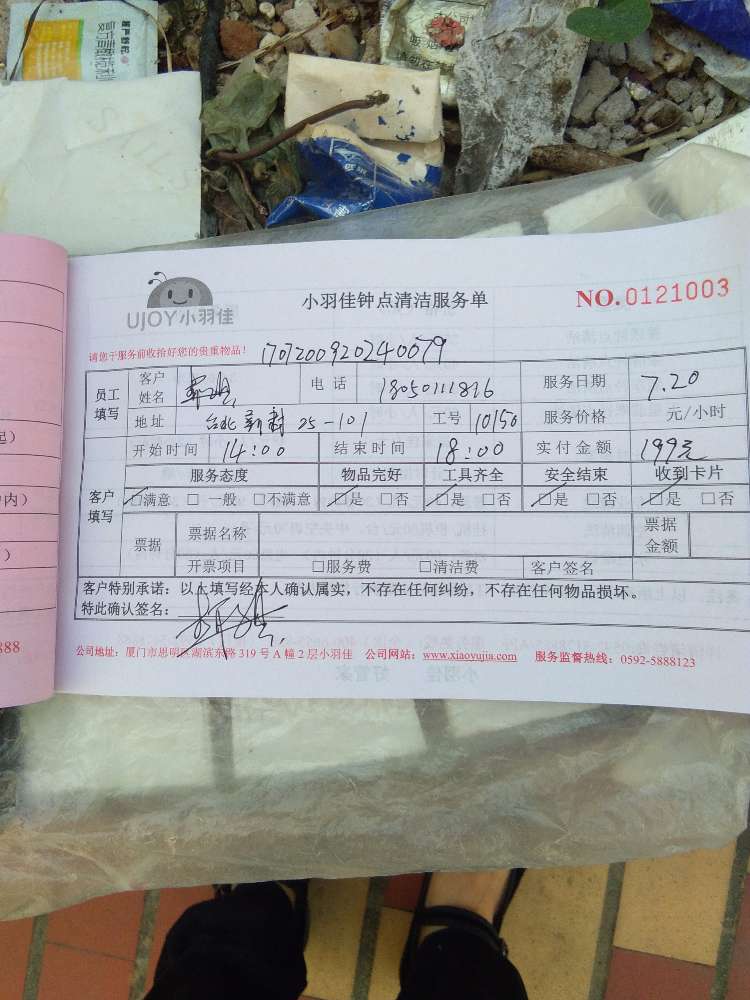 小羽佳钟点清洁服务单
NO.0121003
UJOY小羽佳
请您于服务前收拾好您的贵重物品！
1707200920240079
员工填写 客户姓名 电话 18050111816 服务日期 7.20
地址 台北新村 25-101 工号 10150 服务价格 元/小时
客户填写 开始时间 14:00 结束时间 18:00 实付金额 199元
服务态度 物品完好 工具齐全 安全结束 收到卡片
☑满意 □一般 □不满意 ☑是 □否 ☑是 □否 ☑是 □否 ☑是 □否
票据 票据名称 票据金额
开票项目 □服务费 □清洁费 客户签名
客户特别承诺：以上填写经本人确认属实，不存在任何纠纷，不存在任何物品损坏。
特此确认签名：
公司地址：厦门市思明区湖滨东路 319 号 A 幢 2 层小羽佳 公司网站：www.xiaoyujia.com 服务监督热线：0592-5888123
888